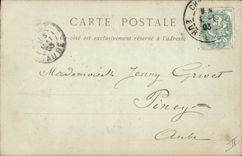 CARTE POSTALE
côté est exclusivement réservé à l'adresse
AUBE
Mademoiselle Jenny Grivet
Piney
Aube